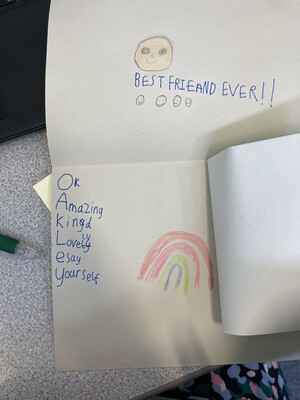 BEST FRIEAND EVER!!
Ok
Amazing
Kingd
Lovely
esay
yourself